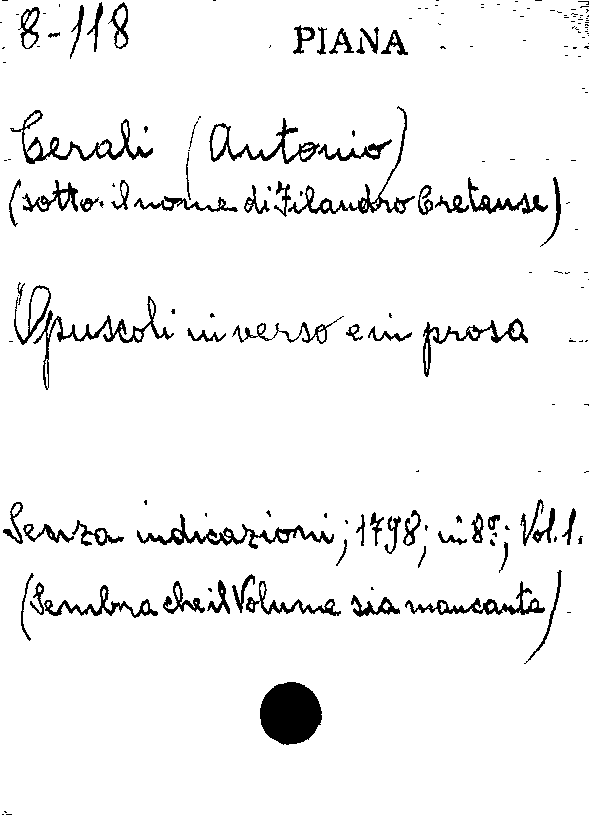 8-118
PIANA
Cerali (Antonio)
(sotto il nome di Filandro Cretense)
Opuscoli in verso e in prosa
Senza indicazioni; 1798; in 8º; Vol. 1.
(Sembra che il Volume sia mancante)